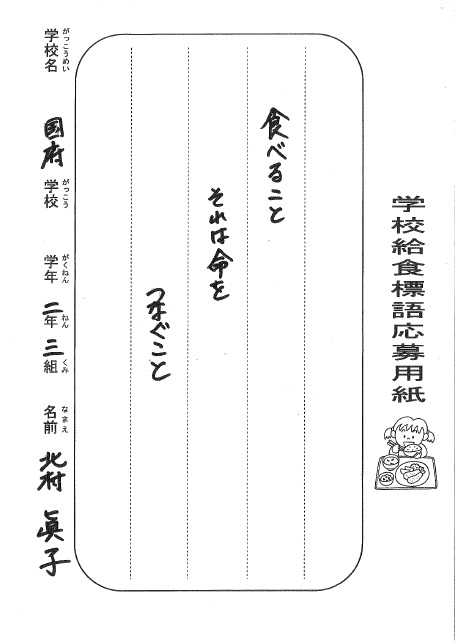 学校給食標語応募用紙
食べること
それは命を
つなぐこと
学校名 国府 学校 学年 二年 三組 名前 北村 眞子
がっこうめい がっこう がくねん ねん くみ なまえ